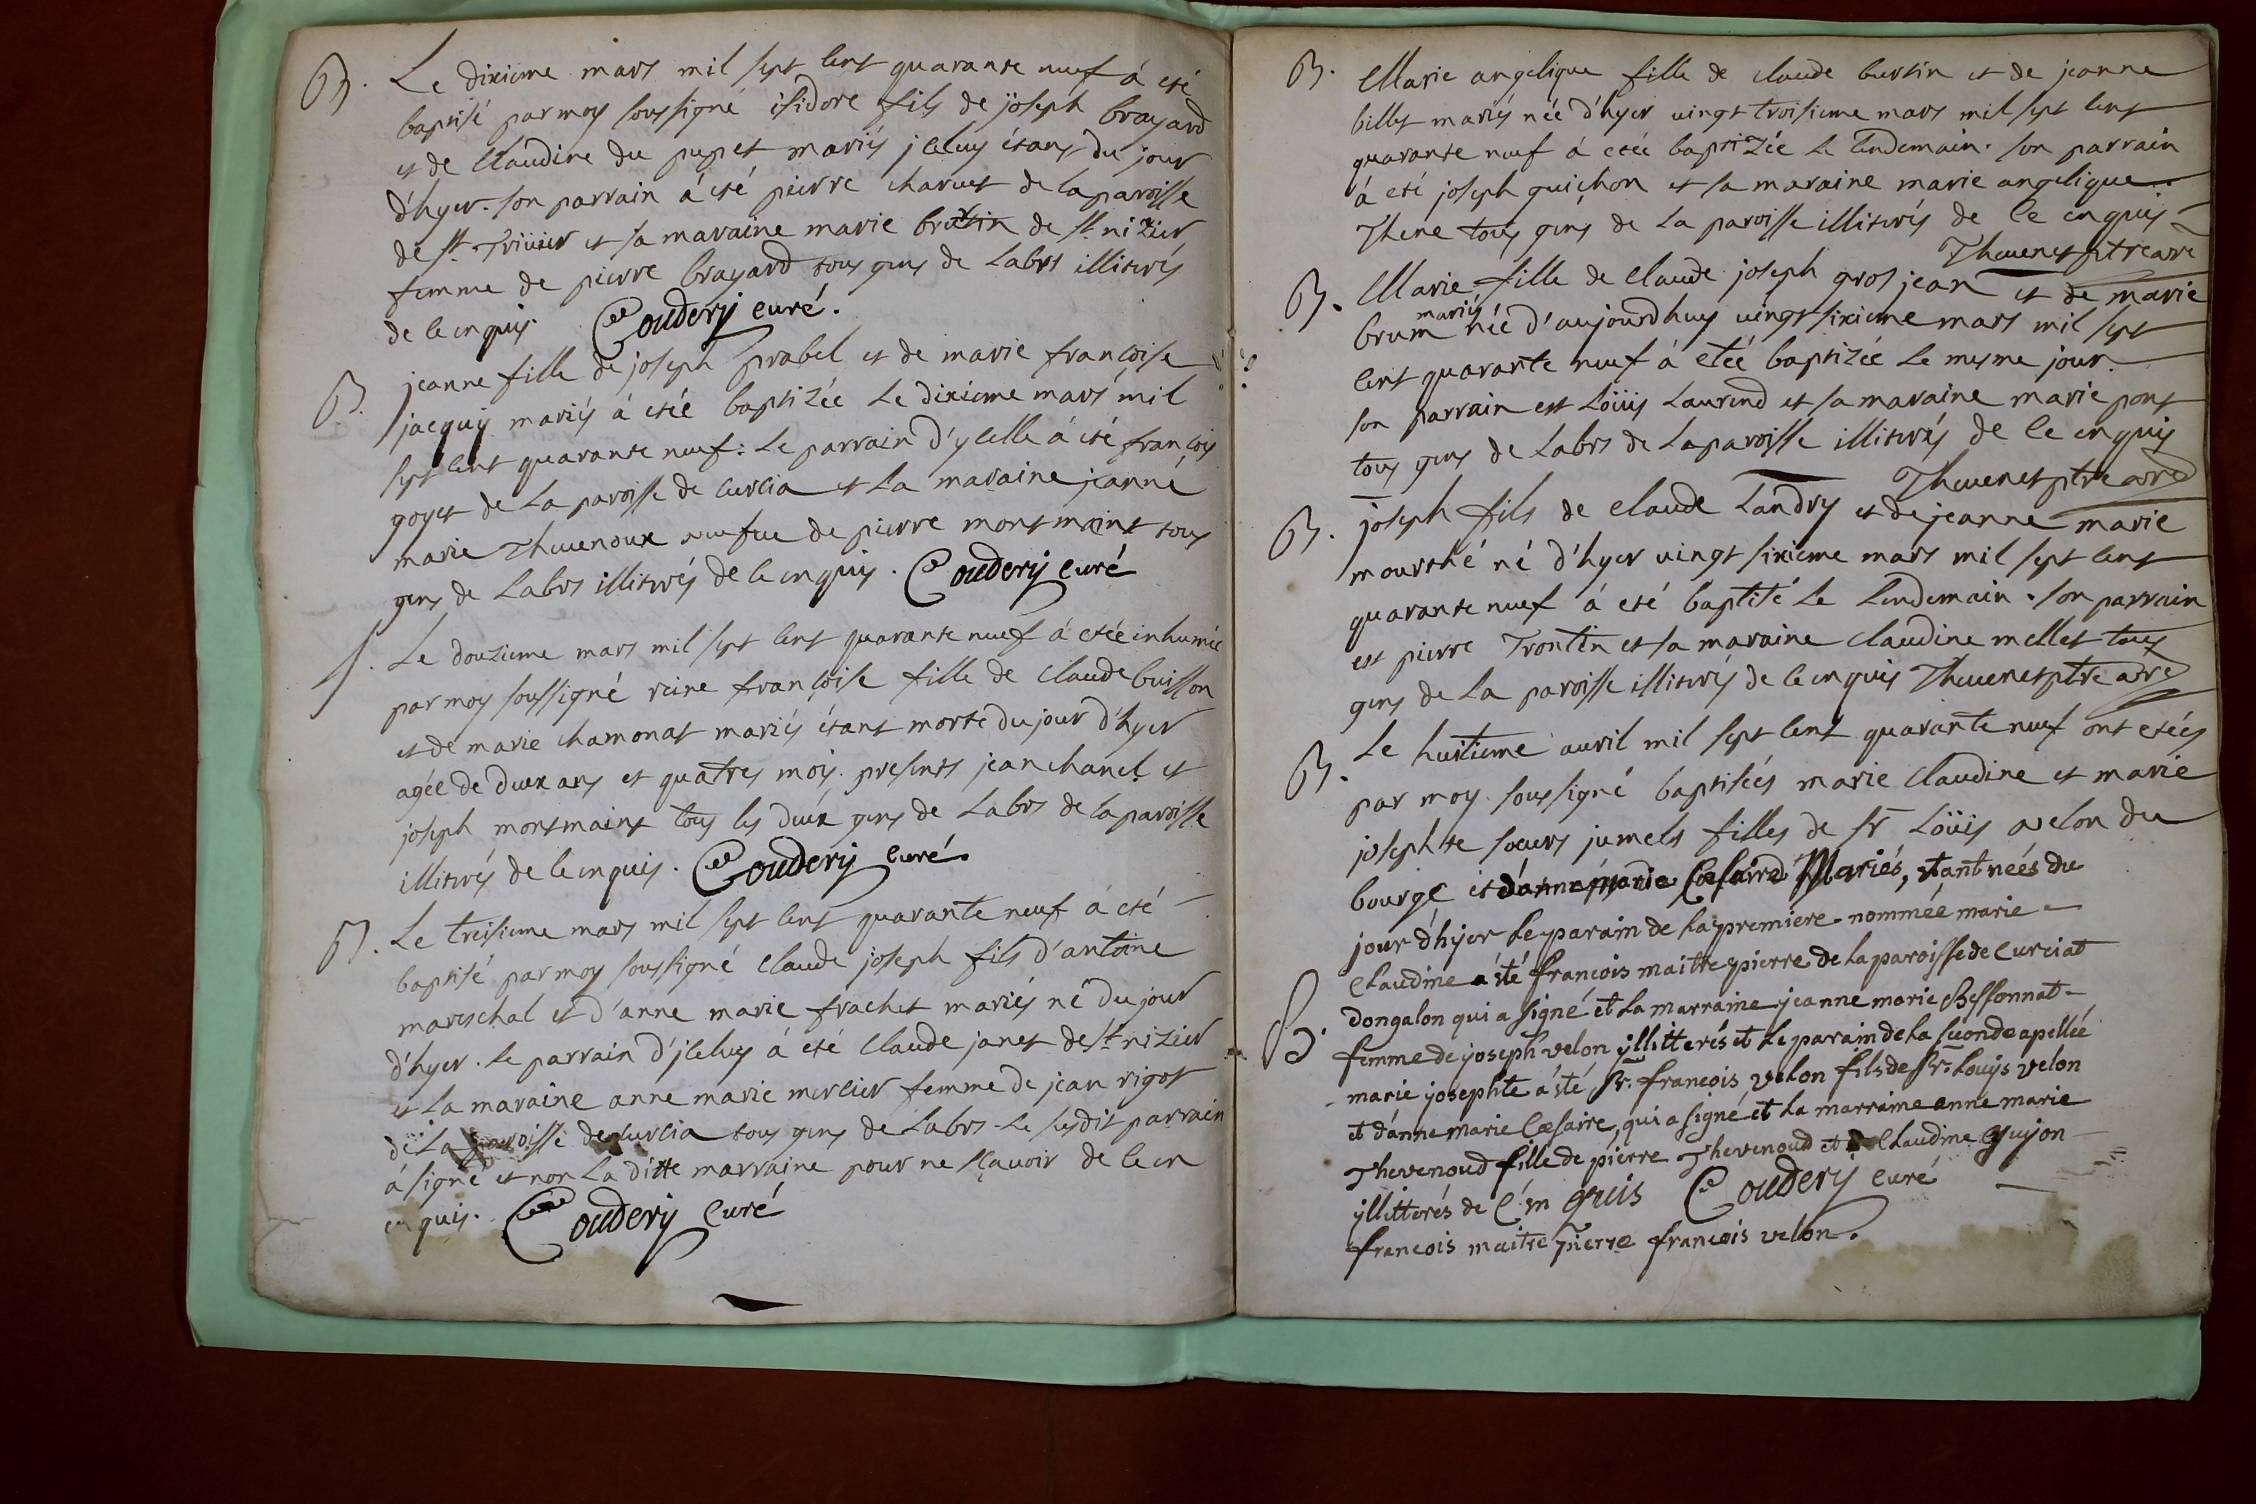 B. Le dixieme mars mil sept cent quarante neuf á eté
baptisé par moy soussigné isidore fils de joseph brayard
et de Claudine du pupet mariés jceluy étant du jour
d'hyer. son parrain á eté pierre charvet de la paroisse
de st. Trivier et sa maraine marie de st. nizier
femme de pierre brayard tous gens de Labrs illiterés
de ce enquis. Coudery curé.
B. jeanne fille de joseph prabel et de marie francoise
jacquis mariés á etée baptizée Le dixieme mars mil
sept cent quarante neuf: Le parrain d'ycelle á eté françois
goyet de La paroisse de curcia et La maraine jeanne
marie Thevenoux veufve de pierre montmaint tous
gens de Labrs illiterés de ce enquis. Coudery curé
S. Le douzieme mars mil sept cent quarante neuf á etée inhumée
par moy soussigné reine françoise fille de Claude buisson
et de marie chamonat mariés étant morte du jour d'hyer
agée de deux ans et quatres mois. presents jean chanel et
joseph montmaint tous les deux gens de Labrs de la paroisse
illiterés de ce enquis. Coudery curé.
B. Le treisieme mars mil sept cent quarante neuf á eté
baptisé par moy soussigné Claude joseph fils d'antoine
mareschal et d'anne marie frachet mariés né du jour
d'hyer. Le parrain d'jceluy á eté Claude janet de st. nizier
et La maraine anne marie mercier femme de jean rigot
de La paroisse de curcia tous gens de Labrs. Le susdit parrain
á signé et non La ditte marraine pour ne sçavoir de ce en
enquis. Coudery Curé
B. Marie angelique fille de claude burtin et de jeanne
billet mariés née d'hyer vingt troisieme mars mil sept cent
quarante neuf á etéé baptizée Le Lendemain. son parrain
á eté joseph guichon et sa maraine marie angelique
Thene tous gens de La paroisse illiterés de ce enquis
Thevenet ptre
B. Marie fille de Claude joseph gros jean et de marie
mariés
brum née d'aujourdhuy vingt sixieme mars mil sept
cent quarante neuf á etéé baptizée Le mesme jour.
son parrain est Loüis Laurend et sa maraine marie pont
tous gens de Labrs de La paroisse illiterés de ce enquis
Thevenet ptre
B. joseph fils de Claude Landry et de jeanne marie
mourthé né d'hyer vingt sixieme mars mil sept cent
quarante neuf á eté baptisé Le Lendemain. son parrain
est pierre Trontin et sa maraine Claudine mellet tous
gens de La paroisse illiterés de ce enquis Thevenet ptre
B. Le huitieme avril mil sept cent quarante neuf ont etées
par moy soussigné baptisées marie Claudine et marie
josephte sœurs jumels filles de sr Loüis velon du
bourge et d'anne marie Cæsaire Mariés, etant neés du
jour d'hijer Le parain de La premiere nommée marie
Claudine a'sté francois maitrepierre de La paroisse de Curciat
dongalon qui a signé et La marraine jeanne marie Bessonnat
B. femme de joseph velon yllitterés et Le parain de La seconde apelleé
marie josephte a'sté Sr. francois velon fils de Sr. Louys velon
et d'anne marie Cæsaire, qui a signé et La marraine anne marie
Thevenoud fille de pierre Thevenoud et Claudine Guyon
yllitterés de C'en quis Coudery Curé
francois maitre pierre francois velon.